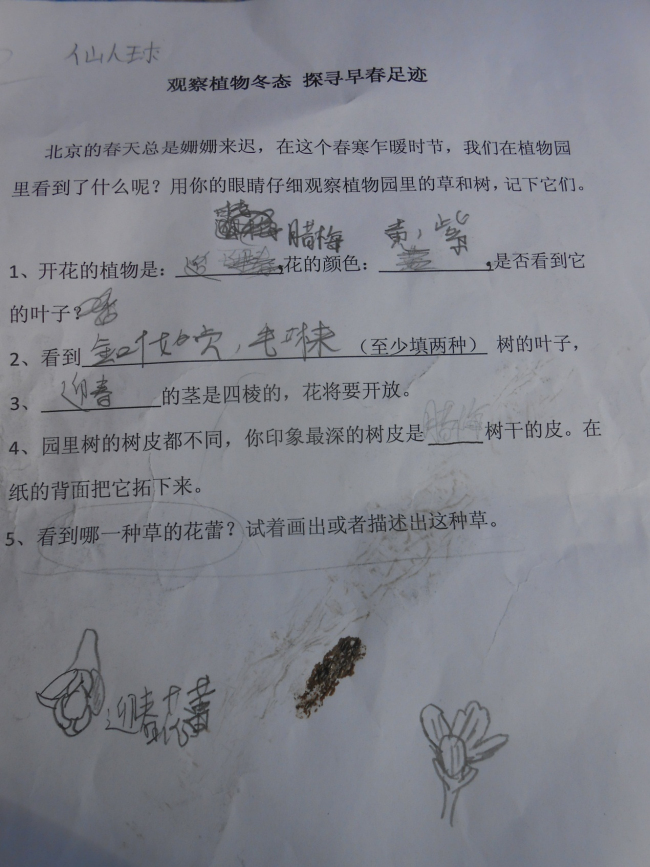 仙人球
观察植物冬态 探寻早春足迹
北京的春天总是姗姗来迟，在这个春寒乍暖时节，我们在植物园
里看到了什么呢？用你的眼睛仔细观察植物园里的草和树，记下它们。
腊梅 黄，紫
1、开花的植物是：，花的颜色：，是否看到它
的叶子？
2、看到 毛 （至少填两种） 树的叶子，
3、迎春的茎是四棱的，花将要开放。
4、园里树的树皮都不同，你印象最深的树皮是腊梅树干的皮。在
纸的背面把它拓下来。
5、看到哪一种草的花蕾？试着画出或者描述出这种草。
迎春花蕾